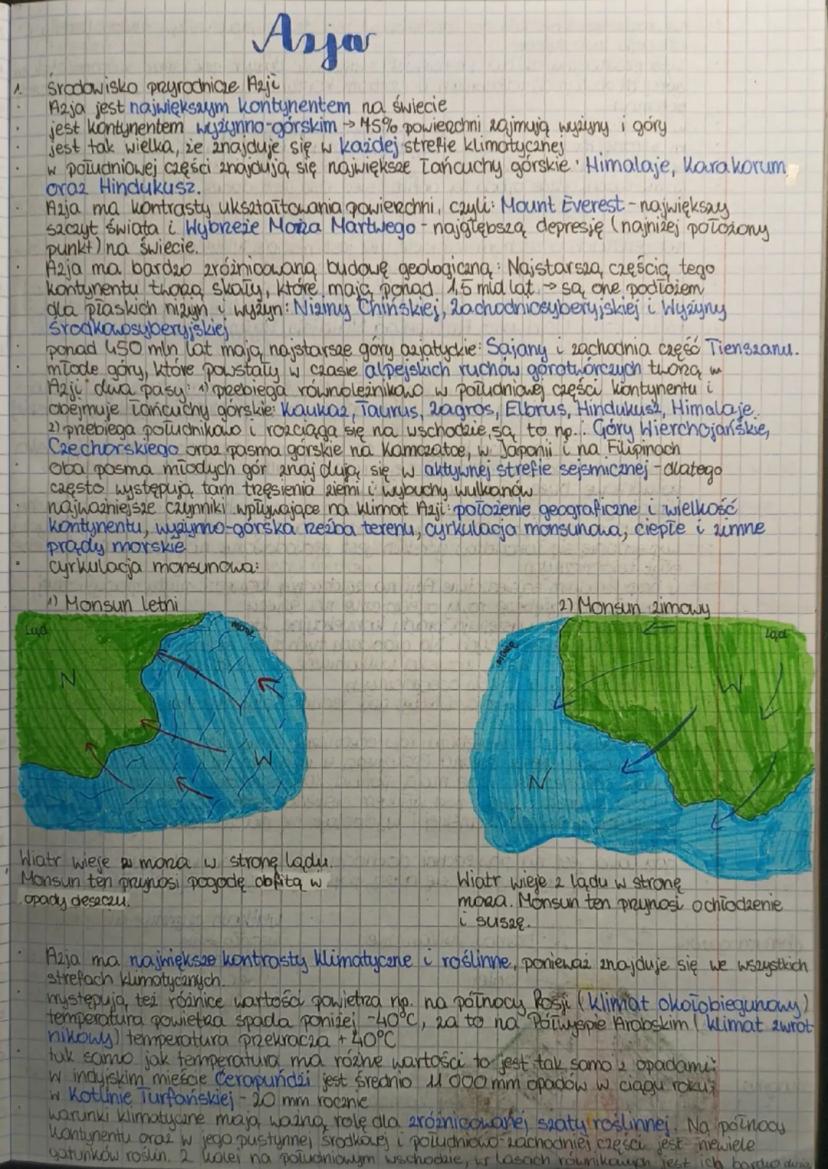 Azja
1. środowisko przyrodnicze Azji
· Azja jest największym kontynentem na świecie
· jest kontynentem wyżynno-górskim → 75% powierzchni zajmują wyżyny i góry
· jest tak wielka, że znajduje się w każdej strefie klimatycznej
· w południowej części znajdują się największe łańcuchy górskie: Himalaje, Karakorum
oraz Hindukusz.
· Azja ma kontrasty ukształtowania powierzchni, czyli: Mount Everest - największy
szczyt świata i Wybrzeże Morza Martwego - najgłębszą depresję (najniżej położony
punkt) na świecie.
· Azja ma bardzo zróżnicowaną budowę geologiczną: Najstarszą częścią tego
kontynentu tworzą skały, które mają ponad 1,5 mld lat → są one podłożem
dla płaskich nizin i wyżyn: Niziny Chińskiej, Zachodniosyberyjskiej i Wyżyny
Środkowosyberyjskiej
· ponad 450 mln lat mają najstarsze góry azjatyckie: Sajany i zachodnia część Tienszanu.
· młode góry, które powstały w czasie alpejskich ruchów górotwórczych tworzą w
Azji dwa pasy: 1) przebiega równoleżnikowo w południowej części kontynentu i
obejmuje łańcuchy górskie: Kaukaz, Taurus, Zagros, Elbrus, Hindukusz, Himalaje.
2) przebiega południkowo i rozciąga się na wschodzie, są to np.: Góry Wierchojańskie,
Czerskiego oraz pasma górskie na Kamczatce, w Japonii i na Filipinach
· Oba pasma młodych gór znajdują się w aktywnej strefie sejsmicznej - dlatego
często występują tam trzęsienia ziemi i wybuchy wulkanów
· najważniejsze czynniki wpływające na klimat Azji: położenie geograficzne i wielkość
kontynentu, wyżynno-górska rzeźba terenu, cyrkulacja monsunowa, ciepłe i zimne
prądy morskie
· cyrkulacja monsunowa:
1) Monsun letni
Ląd
morze
N
W
Wiatr wieje z morza w stronę lądu.
Monsun ten przynosi pogodę obfitą w
opady deszczu.
2) Monsun zimowy
morze
Ląd
W
N
Wiatr wieje z lądu w stronę
morza. Monsun ten przynosi ochłodzenie
i suszę.
· Azja ma największe kontrasty klimatyczne i roślinne, ponieważ znajduje się we wszystkich
strefach klimatycznych.
· występują też różnice wartości powietrza np. na północy Rosji (klimat okołobiegunowy)
temperatura powietrza spada poniżej -40°C, za to na Półwyspie Arabskim (klimat zwrot
nikowy) temperatura przekracza +40°C
· tak samo jak temperatura ma różne wartości to jest tak samo z opadami:
W indyjskim mieście Czerapuńdżi jest średnio 11 000 mm opadów w ciągu roku;
w Kotlinie Turfańskiej - 20 mm rocznie
· warunki klimatyczne mają ważną rolę dla zróżnicowanej szaty roślinnej. Na północy
kontynentu oraz w jego pustynnej środkowej i południowo-zachodniej części jest niewiele
gatunków roślin. Z kolei na południowym wschodzie, w lasach równikowych jest ich bardzo